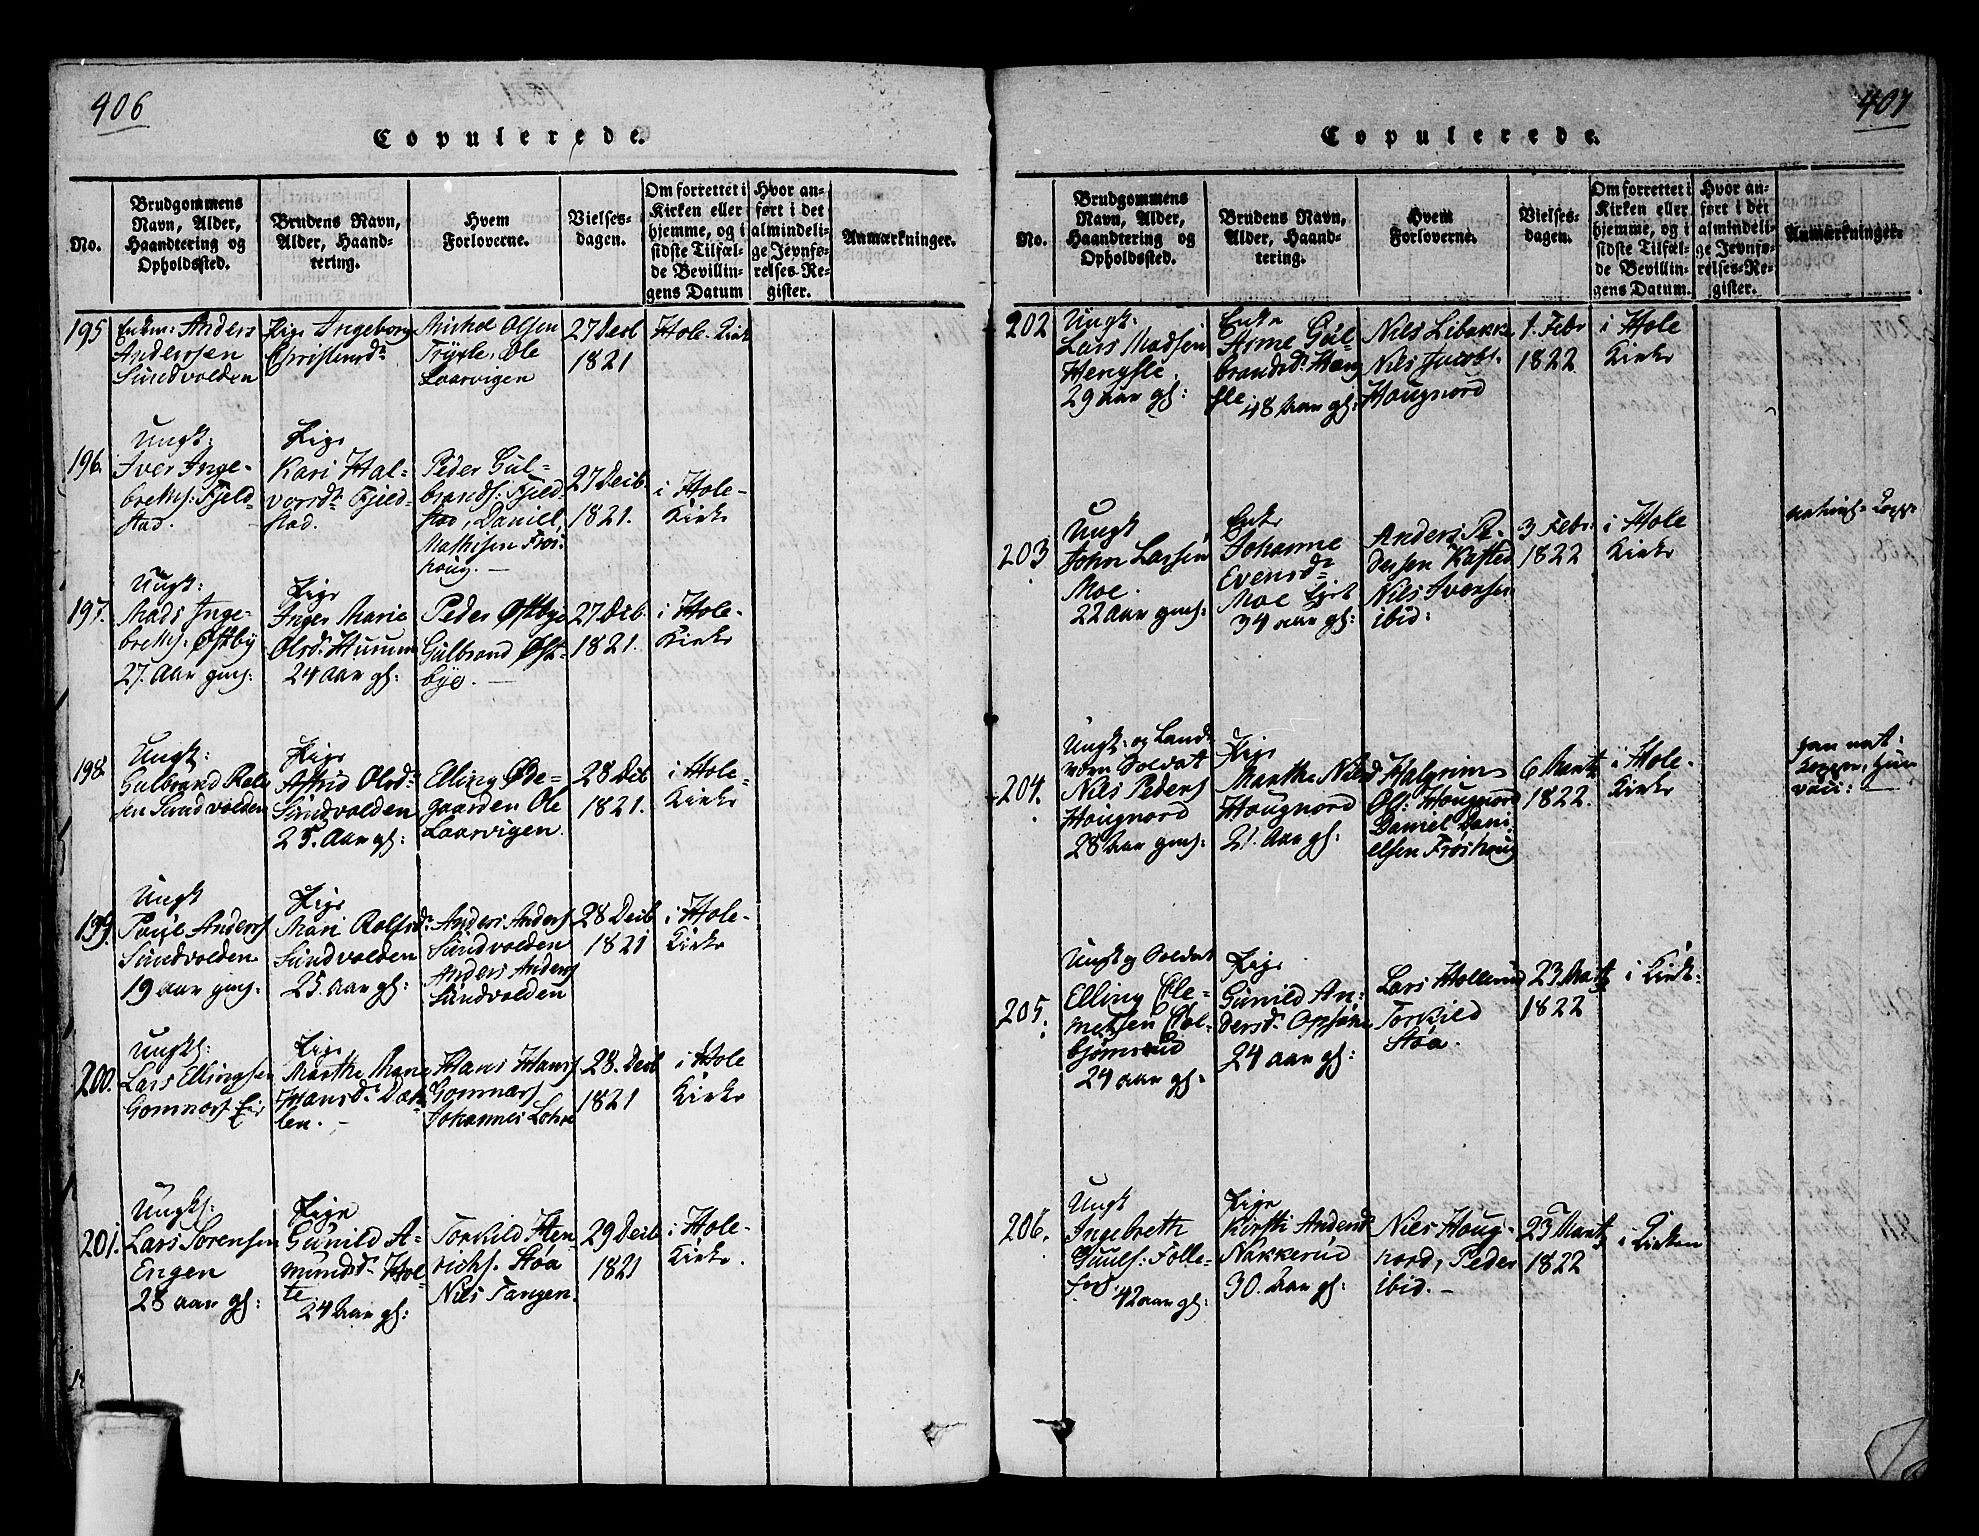 406
Copulerede.
No.
Brudgommens
Navn, Alder,
Haandtering og
Opholdssted.
Brudens Navn,
Alder, Haand-
tering.
Hvem
Forloverne.
Vielses-
dagen.
Om forrettet i
Kirken eller
hjemme, og i
sidste Tilfæl-
de Bevillin-
gens Datum
Hvor an-
ført i det
almindeli-
ge Jevnfø-
relses-Re-
gister.
Anmærkninger.
195
Enkm: Anders
Anderssen
Sundvolden
Pige Ingeborg
Christensdr
Michel Olsen
Ole
Laarvigen
27 Decb
1821
Hole Kirk
196.
Ungk:
Iver Inge-
breths: Fjeld-
stad.
Pige
Kari Hal-
vorsdr Fjeld-
stad.
Peder Gul-
brands: Fjeld-
stad, Daniel
Mathisen Frøs-
houg.
27 Decb.
1821.
i Hole-
Kirke
197.
Ungk:
Mads Inge-
breths: Østby
27. Aar gml:
Pige
Inger Marie
Olsdr Hurum
24 Aar gl:
Peder Østbye
Gulbrand Øst-
bye.
27 Deb.
1821.
i Hole-
Kirke
198
Ungk:
Gulbrand
Sundvolden
Pige
Astrid Olsdr
Sundvolden
25. Aar gl:
Elling Øde-
gaarden Ole
Laarvigen.
28 Deb
1821.
i Hole-
Kirke
199.
Ungk
Poul Anders
Sundvolden
19 aar gml.
Pige
Mari Rolfsdr
Sundvolden
25. Aar gl:
Anders Anders
Sundvolden
Anders Anders
Sundvolden
28 Decb
1821
i Hole-
Kirke
200.
Ungk:
Lars Ellingsen
Gomnæs
Pige
Marthe Marie
Hansdr
len.
Hans Hans
Gomnæs
Johannes Lohre
28. Decb
1821
i Hole
Kirke
201.
Ungk:
Lars Sørensen
Engen
28 aar gl:
Pige
Gunild A-
mundsdr Hol-
te
24 Aar gl:
Torkild Hen-
richs. Støa
Nils Tangen.
29 Decb
1821
i Hole-
Kirke.
407
Copulerede.
No.
Brudgommens
Navn, Alder,
Haandtering og
Opholdssted.
Brudens Navn,
Alder, Haand-
tering.
Hvem
Forloverne.
Vielses-
dagen.
Om forrettet i
Kirken eller
hjemme, og i
sidste Tilfæl-
de Bevillin-
gens Datum.
Hvor an-
ført i det
almindeli-
ge Jevnfø-
relses-Re-
gister.
Anmærkninger.
202
Ungk:
Lars Madsen
Hengsle
29 aar gl:
Enke
Anne Gul-
brandsdr Heng
sle 48 Aar gl:
Nils Libakke
Nils Jacobs.
Hougnord
1. Febr
1822
i Hole
Kirke
203
Ungk
John Larsen
Moe.
22 aar gml:
Enke
Johanne
Evensdr
Moe
34 aar gl:
Anders Pe-
dersen
Nils Iversen
ibid:
3 Febr:
1822
i Hole
Kirke
204.
Ungk: og Land
værn Soldat
Nils Peders
Hougnord
28 Aar gml:
Pige
Marthe Nilsd
Hougnord
21. Aar gl:
Halgrim
Ol: Hougnord
Daniel Dani-
elsen Frøshoug
6 Marts
1822.
i Hole-
Kirke
205.
Ungk og Soldat
Elling Cle-
metsen Col-
bjørnsrud
24 aar gl.
Pige
Gunild An-
dersdr Opsøen
24 aar gl:
Lars Hollerud
Torkild
Støa.
23 Marts
1822
i Kirk:
206.
Ungk
Ingebreth
Guuls: Folle-
42 aar gl:
Pige
Kirsti Andersd
Nakkerud
30. Aar gl:
Nils Houg-
nord, Peder
ibid.
23 Marts
1822
i Kirken